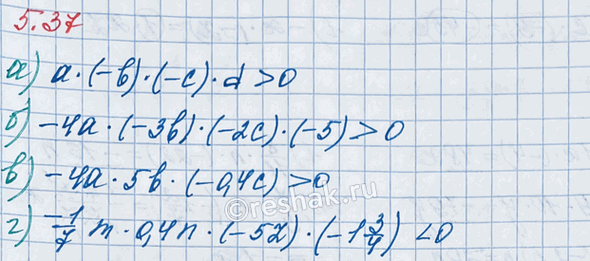 5.37
а) a·(-b)·(-c)·d>0
б) -4a·(-3b)·(-2c)·(-5)>0
в) -4a·5b·(-0,4c)>0
г) -1/7 m·0,4n·(-5z)·(-1 3/4)<0
©reshak.ru